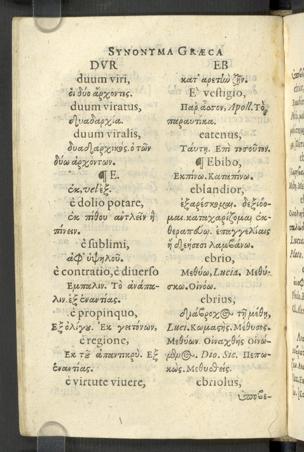 SYNONYMA GRÆCA
DVR
duum viri,
οἱ δύο ἄρχοντες.
duum viratus,
δυαδαρχία.
duum viralis,
δυαδιαρχικός. ὁ τῶν
δύω ἀρχόντων.
¶ E.
ἐκ, vel ἐξ.
è dolio potare,
ἐκ πίθου ἀντλεῖν ἢ
πίνειν.
è sublimi,
ἀφ' ὑψηλοῦ.
è contratio, è diuerso
Εμπαλιν. Τὸ ἀνάπα-
λιν. ἐξ ἐναντίας.
è propinquo,
Εξ ὀλίγου. Εκ γειτόνων.
è regione,
Εκ τοῦ ἀπαντικρύ. Εξ
ἐναντίας.
è virtute viuere,
EB
κατ' ἀρετὴν ζῆν.
E vestigio,
Παραυτὰ. Apoll. Τὸ
παραυτίκα.
eatenus,
Ταύτῃ. Επὶ τοσοῦτον.
¶ Ebibo,
Εκπίνω. Καταπίνω.
eblandior,
ἐξαρέσκομαι. δεξιόο-
μαι. καταχαρίζομαι. ἐκ-
θεραπεύω. ἐπαγγελίαις
ἢ δεήσεσι λαμβάνω.
ebrio,
Μεθύω, Lucia. Μεθύ-
σκω. Οἰνόω.
ebrius,
διάβροχος τῇ μέθῃ,
Luci. Κωμαστής. Μέθυσος.
Μεθύων. Οἰναχθής. Οἰνω-
μένος. Dio. Sic. Πεπω-
κώς. Μεθυσθείς.
ebriolus,
ὑποβε-